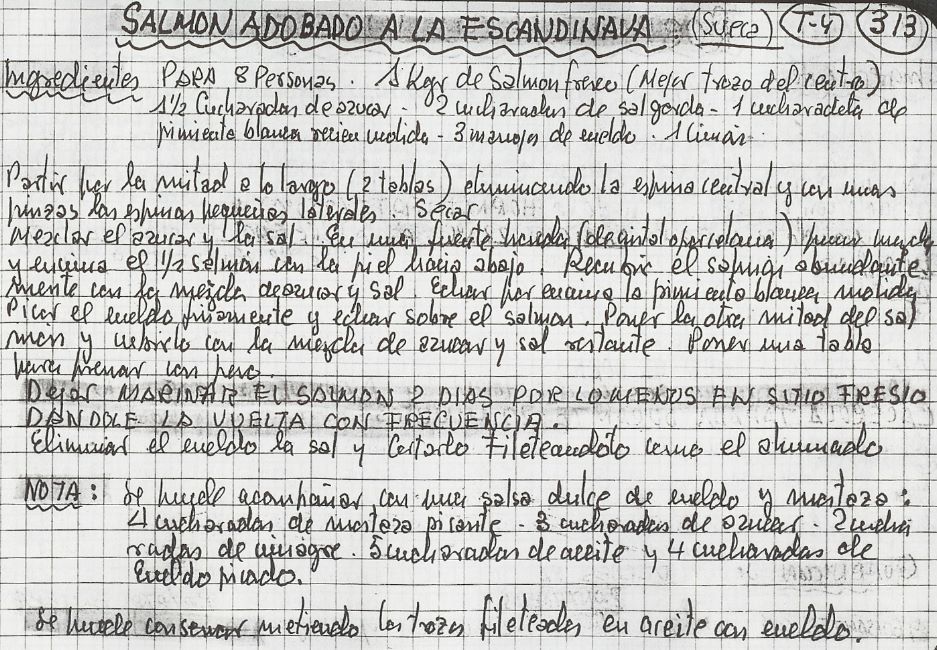 SALMON ADOBADO A LA ESCANDINAVA (Sueca) T-4 313
Ingredientes PARA 8 Personas. 1 Kgr de Salmon fresco (Mejor trozo del centro)
1 1/2 Cucharadas de azucar - 2 cucharadas de sal gorda - 1 cucharadeta de
pimienta blanca recien molida - 3 manojos de eneldo. 1 Limón.
Partir por la mitad a lo largo (2 tablas) eliminando la espina central y con unas
pinzas las espinas pequeñas laterales Secar
Mezclar el azucar y la sal. En una fuente honda (de cristal o porcelana) poner mezcla
y encima el 1/2 salmón con la piel hacia abajo. Recubrir el salmon abundante-
mente con la mezcla de azucar y sal. Echar por encima la pimienta blanca molida
Picar el eneldo finamente y echar sobre el salmon. Poner la otra mitad del sal
món y cubrirlo con la mezcla de azucar y sal restante. Poner una tabla
para prensar con peso.
Dejar MARINAR EL SALMON 2 DIAS POR LO MENOS EN SITIO FRESCO
DANDOLE LA VUELTA CON FRECUENCIA.
Eliminar el eneldo la sal y Cortarlo Fileteandolo como el ahumado
NOTA: Se puede acompañar con una salsa dulce de eneldo y mostaza:
4 cucharadas de mostaza picante - 3 cucharadas de azucar - 2 cucha
radas de vinagre. 5 cucharadas de aceite y 4 cucharadas de
Eneldo picado.
Se puede conservar metiendo los trozos fileteados en aceite con eneldo.